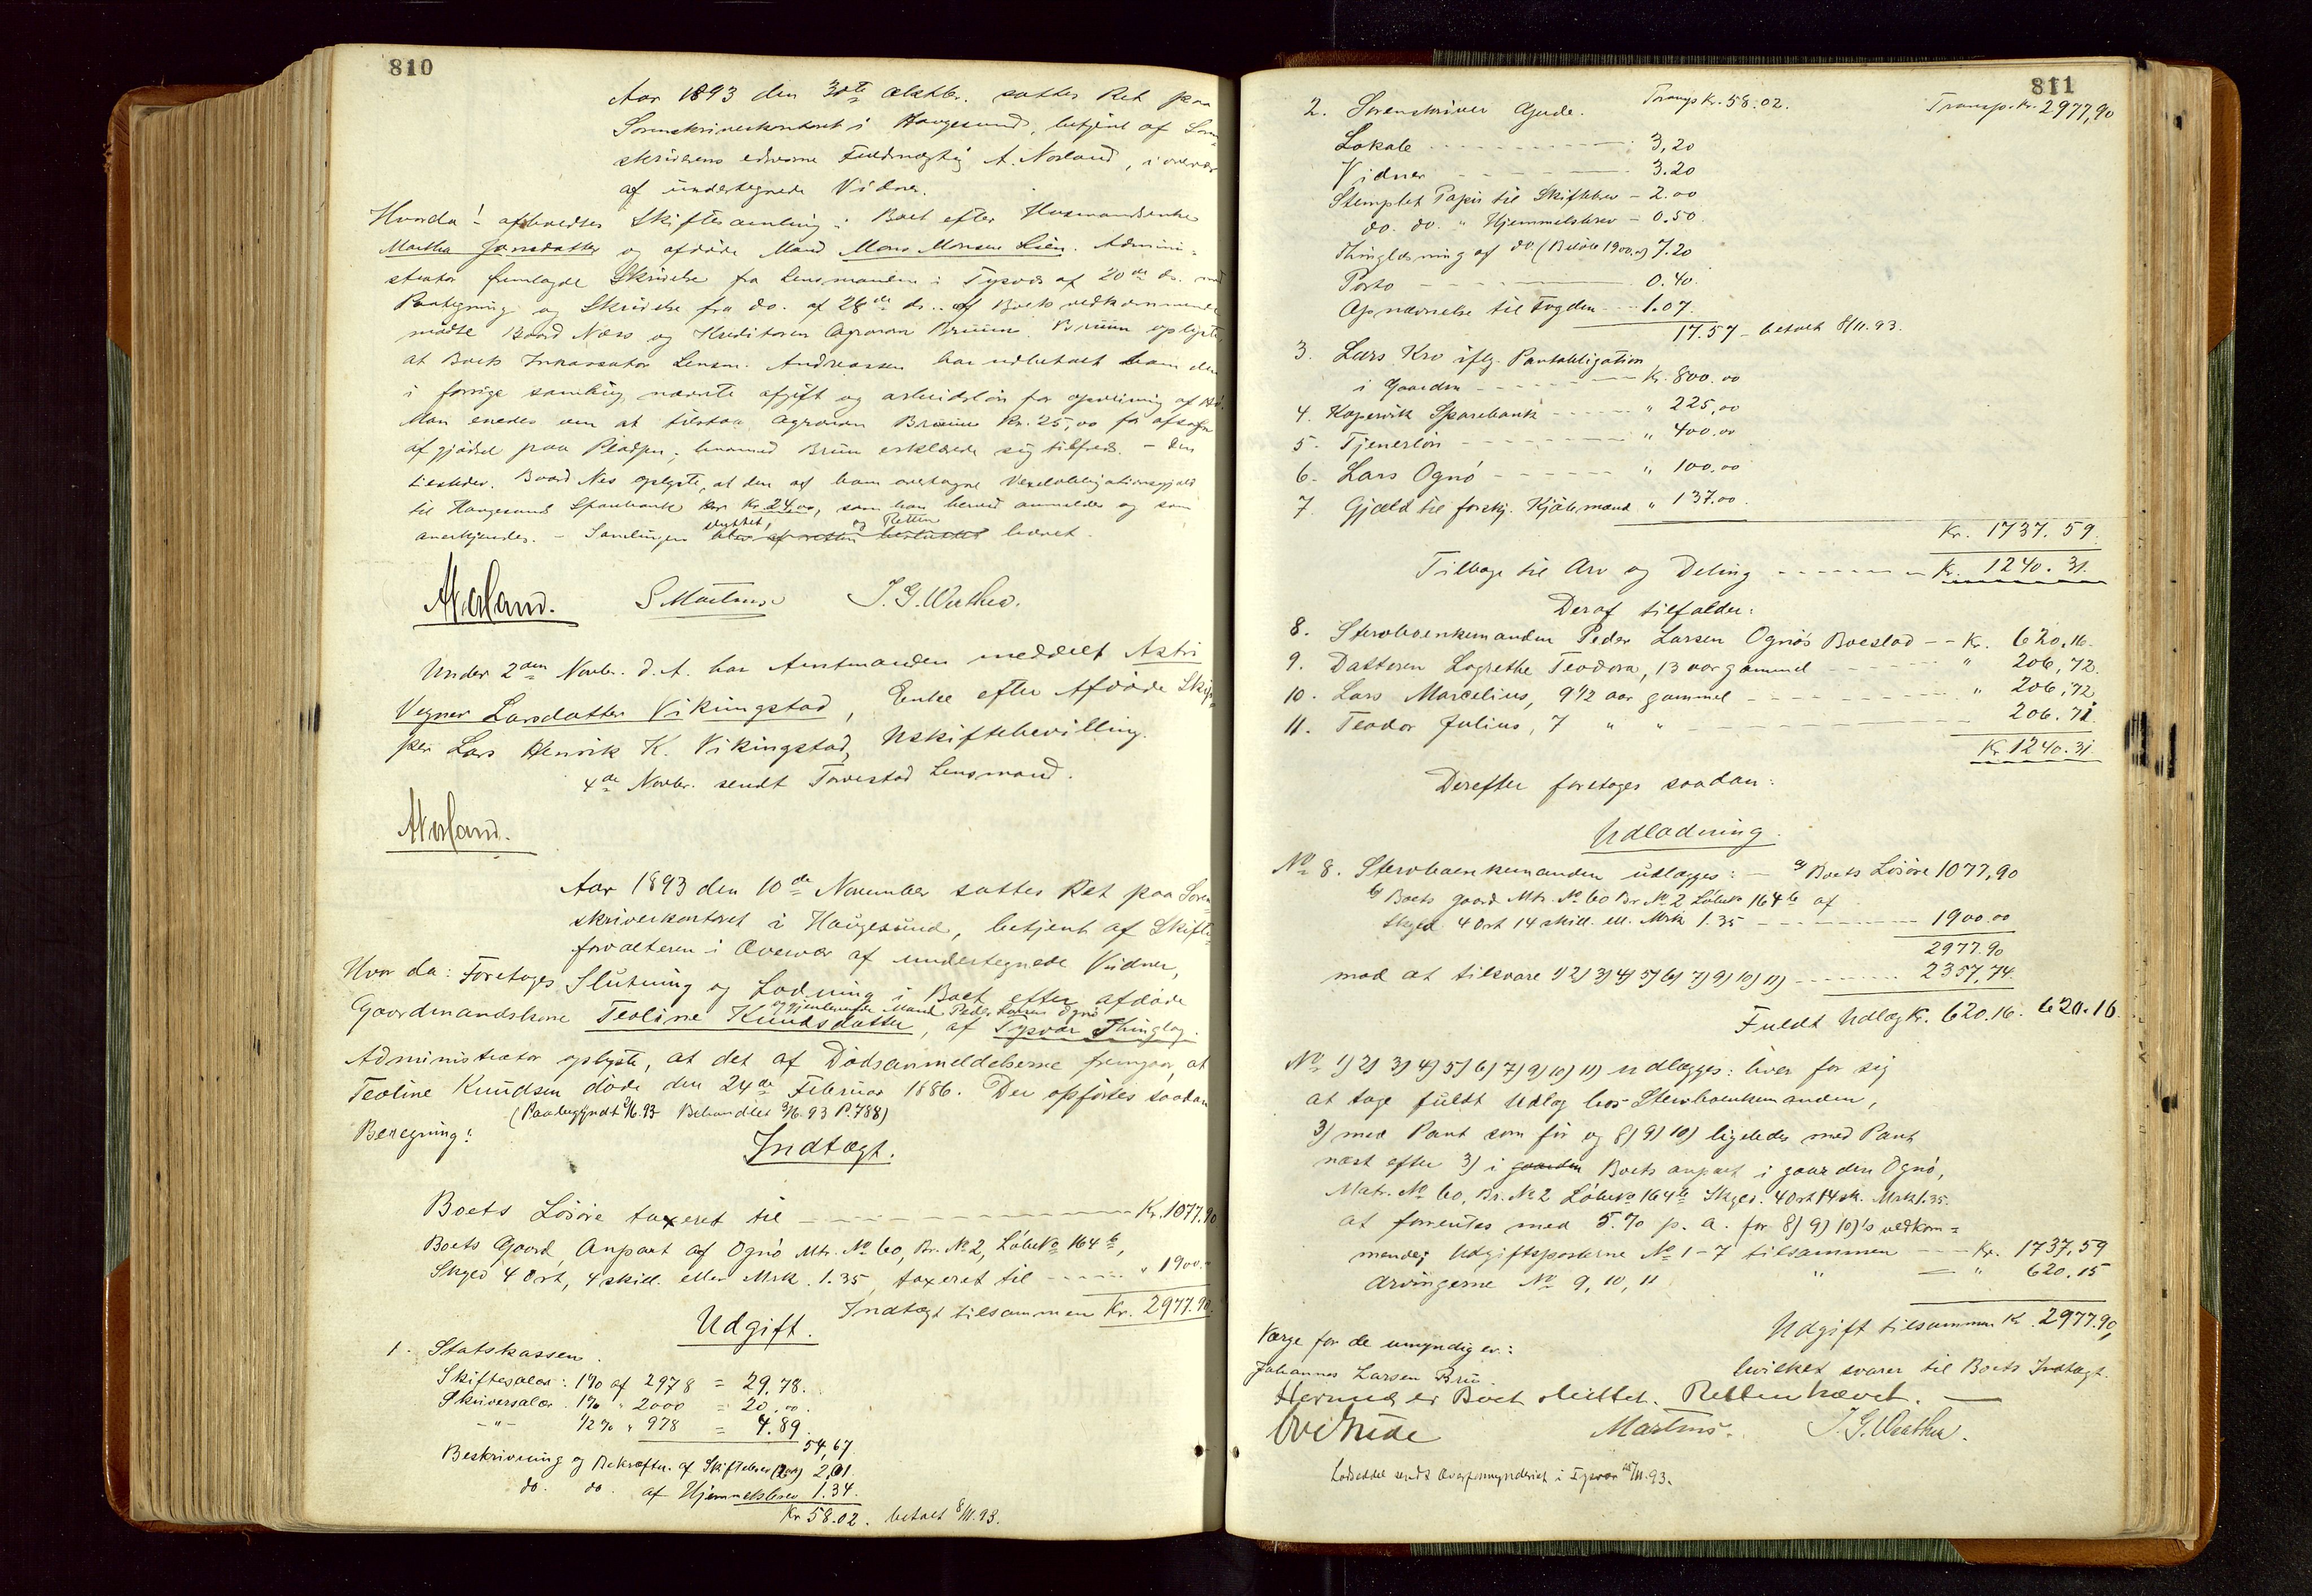 810
Aar 1893 den 30te Oktbr. sattes Ret paa
Sorenskriverkontoret i Haugesund, betjent af Soren-
skriverens edsvorne Fuldmægtig A. Norland, i overvær
af undertegnede Vidner.
Hvorda: afholdtes Skiftesamling i Boet efter Husmandsenke
Martha Jonsdatter og afdøde Mand Mons Monsen Lien. Admini-
strator fremlagde Skrivelse fra Lensmanden i Tysvær af 20de ds. med
Paategning og Skrivelse fra do. af 28de ds. Af Boets vedkommende
mødte Baard Næss og Kreditoren Agronom Bruun. Bruun oplyste,
at Boets Inkassator Lensm. Andreassen har udbetalt ham den
i forrige samling nævnte afgift og arbeidsløn for
Man enedes om at tilstaa Agronom Bruun Kr. 25,00 for
af gjødsel paa Pladsen, hvormed Bruun erklærede sig tilfreds. – Den
tilstedev. Baard Nes oplyste, at den af ham overtagne Vexelobligationsgjæld
til Haugesunds Sparebank er Kr. 24,00, som han herved anmelder og som
anerkjendes. – Samlingen sluttet, og Retten blev af retten besluttet hævet.
ANorland. S Martinus J. G. Wathne.
Under 2den Novbr. d. A. har Amtmanden meddelt Astri
Vegner Larsdatter Vikingstad, Enke efter Afdøde Skip-
per Lars Henrik K. Vikingstad, Uskiftebevilling.
4de Novbr. sendt Torvestad Lensmand.
ANorland.
Aar 1893 den 10de November sattes Ret paa Soren-
skriverkontoret i Haugesund, betjent af Skifte-
forvalteren i Overvær af undertegnede Vidner,
Hvor da: Foretoges Slutning og Lodning i Boet efter afdøde
og gjenlevende Mand Peder Larsen Ognø
Gaardmandskone Teoline Knudsdatter, af Tysvær Thinglag.
Administrator oplyste, at det af Dødsanmeldelserne fremgaar, at
Teoline Knudsen døde den 24de Februar 1886. Der opførtes saadan
(Paabegyndt 9/6.93 Behandlet 9/6.93 P. 788)
Beregning:
Indtægt.
Boets Løsøre taxeret til – – – – Kr. 1077.90
Boets Gaard, Anpart af Ognø Mtr. No 60, Br. No 2, LøbeNo 164 b,
Skyld 4 Ort, 4 skill. eller Mrk. 1.35, taxeret til – – – " 1900.–
Indtægt tilsammen Kr. 2977.90
Udgift.
1. Statskassen.
Skiftesalær: 1% af 2978 = 29.78.
Skriversalær. 1% " 2000 = 20.00.
– " – 1/2 % " 978 = 4.89.
54,67
Beskrivning og Bekræftn. af Skiftebrev 2,01
do. do. af Hjemmelsbrev 1.34.
Kr. 58.02. betalt 8/11.93.
811
2. Sorenskriver Gude. Transp Kr. 58.02. Transp. Kr. 2977,90
Lokale – – – 3,20
Vidner – – – 3.20
Stemplet Papir til Skiftebrev – 2.00
do. do. " Hjemmelsbrev – 0.50
Thinglæsning af do. (Beløb 1900.–) 7.20
Porto – – – 0.40.
Opnævnelse til Fogden – – 1.07.
17.57 – betalt 8/11.93.
3. Lars Kro iflg. Pantobligation
i Gaarden – – – Kr. 800.00
4. Kopervik Sparebank – – – " 225,00
5. Tjenerløn – – – " 400.00
6. Lars Ognø – – – " 100.00
7. Gjæld til forskj. Kjøbmænd " 137.00.
Kr. 1737.59.
Tilbage til Arv og Deling – – – Kr. 1240.31.
Deraf tilfalder:
8. Stervboenkemanden Peder Larsen Ognøs Boeslod – – Kr. 620,16.
9. Datteren Lagrethe Teodora, 13 aar gammel – – – " 206,72.
10. Lars Marcelius, 9 1/2 aar gammel – – – " 206,72
11. Teodor Julius, 7 " " – – – 206.71
Kr 1240.31.
Derefter foretoges saadan:
Udlodning.
No 8. Stervboenkemanden udlægges: – a) Boets Løsøre 1077,90
b) Boets gaard Mtr. No 60 Br. No 2 LøbeNo 164 b af
Skyld 4 Ort 14 skill. ell. Mrk 1.35 – – – 1900.00
2977.90
mod at tilsvare 1) 2) 3) 4) 5) 6) 7) 9) 10) 11) – – – 2357.74.
Fuldt Udlæg Kr. 620.16. 620.16.
No 1) 2) 3) 4) 5) 6) 7) 9) 10) 11) udlægges: hver for sig
at tage fuldt Udlæg hos Stervboenkemanden,
3) med Pant som før og 8) 9) 10) ligeledes med Pant
næst efter 3) i gaarden Boets anpart i gaarden Ognø,
Matr. No 60, Br. No 2 LøbeNo 164 b Skyld: 4 Ort 14 sk. Mrk 1.35.
at forrentes med 5.% p. a. for 8) 9) 10)'s vedkom-
mende; Udgiftsposterne No 1–7 tilsammen – – Kr. 1737,59
Arvingerne No 9, 10, 11 " – " 620.15
Udgift tilsammen Kr. 2977.90,
Værge for de umyndige er:
hvilket svarer til Boets Indtægt.
Johannes Larsen Bru.
Hermed er Boet sluttet. Retten hævet. –
Ove Gude Martinus. J. G. Wathne.
Lodseddel sendt Overformynderiet i Tysvær /11.93.